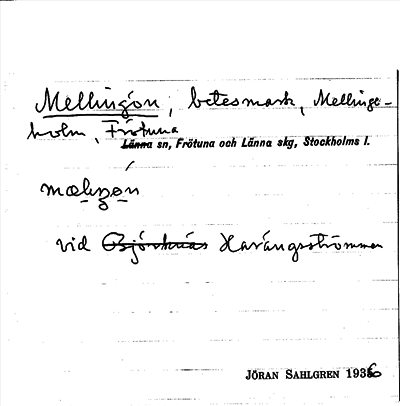 Mellingön, betesmark, Mellinge-
holm, Frötuna
Länna sn, Frötuna och Länna skg, Stockholms l.
vid Björknäs Haxängsströmmen
JÖRAN SAHLGREN 1936